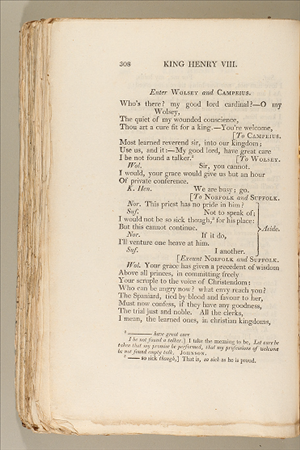 308 KING HENRY VIII.
Enter WOLSEY and CAMPEIUS.
Who's there? my good lord cardinal?—O my
Wolsey,
The quiet of my wounded conscience,
Thou art a cure fit for a king.—You're welcome,
[To CAMPEIUS.
Most learned reverend sir, into our kingdom;
Use us, and it:—My good lord, have great care
I be not found a talker.² [To WOLSEY.
Wol. Sir, you cannot.
I would, your grace would give us but an hour
Of private conference.
K. Hen. We are busy; go.
[To NORFOLK and SUFFOLK.
Nor. This priest has no pride in him?
Suf. Not to speak of;
I would not be so sick though,³ for his place:
But this cannot continue. Aside.
Nor. If it do,
I'll venture one heave at him.
Suf. I another.
[Exeunt NORFOLK and SUFFOLK.
Wol. Your grace has given a precedent of wisdom
Above all princes, in committing freely
Your scruple to the voice of Christendom:
Who can be angry now? what envy reach you?
The Spaniard, tied by blood and favour to her,
Must now confess, if they have any goodness,
The trial just and noble. All the clerks,
I mean, the learned ones, in christian kingdoms,
² —— have great care
I be not found a talker.] I take the meaning to be, Let care be
taken that my promise be performed, that my professions of welcome
be not found empty talk. JOHNSON.
³ —— so sick though,] That is, so sick as he is proud.